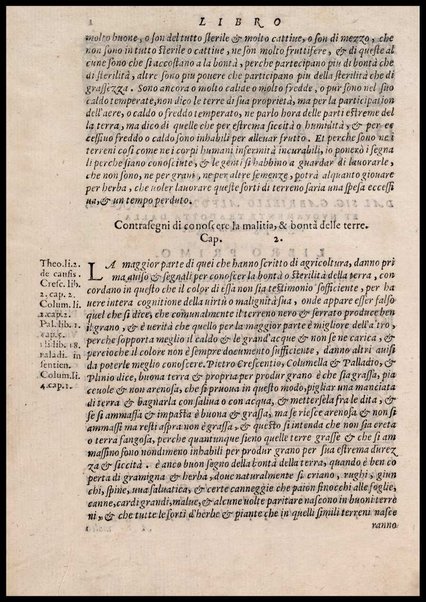 2 LIBRO
molto buone, o son del tutto sterile & molto cattiue, o son di mezzo, che
non sono in tutto sterile o cattiue, ne son molto fruttifere, & di queste al
cune sono che si accostano a la bontà, perche partecipano piu di bontà che
di sterilità, altre sono piu pouere che participano piu della sterilità che di
grassezza. Sono ancora o molto calide o molto fredde, o pur sono nel suo
caldo temperate, non dico le terre di sua proprietà, ma per la participation
dell'aere, o caldo o freddo temperato, ne parlo hora delle parti estreme del
la terra, ma dico di quelle che per estrema siccità o humidità, & per ec
cessiuo freddo o caldo sono inhabili per alleuar frutto. Et perche sono ne i
terreni così come ne i corpi humani infermità incurabili, io ponerò i segna
li perche siano conosciute, & le genti si habbino a guardar di lauorarle,
che non sono, ne per grani, ne per altre semenze, potrà alquanto giouare
per herba, che uoler lauorare queste sorti di terreno saria una spesa eccessi
ua, & un tempo perduto.
Contrasegni di conoscere la malitia, & bontà delle terre.
Cap. 2.
Theo. li. 2.
de causis.
Cresc. lib.
2. cap. 2.
Colum. li.
2. cap. 2.
Pal. lib. 1.
cap. 5.
Pli. li. 18.
paladi. in
sentien.
Colum. li.
4. cap. 1.
LA maggior parte di quei che hanno scritto di agricoltura, danno pri
ma auiso & segnali per conoscer la bontà o sterilità della terra, con
cordano in questo che il color di essa non sia testimonio sofficiente, per ha
uere intera cognitione della uirtù o malignità sua, onde appare esser falso
quel che si dice, che comunalmente il terreno nero & serrato produce ben
il grano, & è uerità che quello per la maggior parte è migliore dell'altro,
perche sopporta meglio il caldo & le grand'acque & non se ne carica, &
percioche il colore non è sempre documento sufficiente, danno altri ausi
da poterle meglio conoscere. Pietro Crescentio, Columella & Palladio, &
Plinio dice, buona terra & propria per produr grano è che sia grassa, pia
ceuole & non arenosa, che si pruoua in questo modo, pigliar una manciata
di terra & bagnarla con saliua o con acqua, & mettersela fra le dita, &
se si ammassa & impasta è buona & grassa, ma se riesce arenosa & non si
ammassi ma resti aspra non è grassa, & questo si intenda che non sia creta
o terra fangosa, perche quantunque sieno quelle terre grasse & che si am
massino sono nondimeno inhabili per produr grano per sua estrema durez
za & siccità. è anco buon segno della bontà della terra, quando è ben co
perta di gramigna & herba, doue naturalmente si criano, rughi, giun
chi, spine, uua saluatica, & certe canneggie che paion finocchi alle foglie,
canne, cardi grandi, malue, & alcune uolte paritare nascono in buoni terre
ni, & che tutte le sorti d'herbe & piante che in quelli simili terreni nasce
ranno